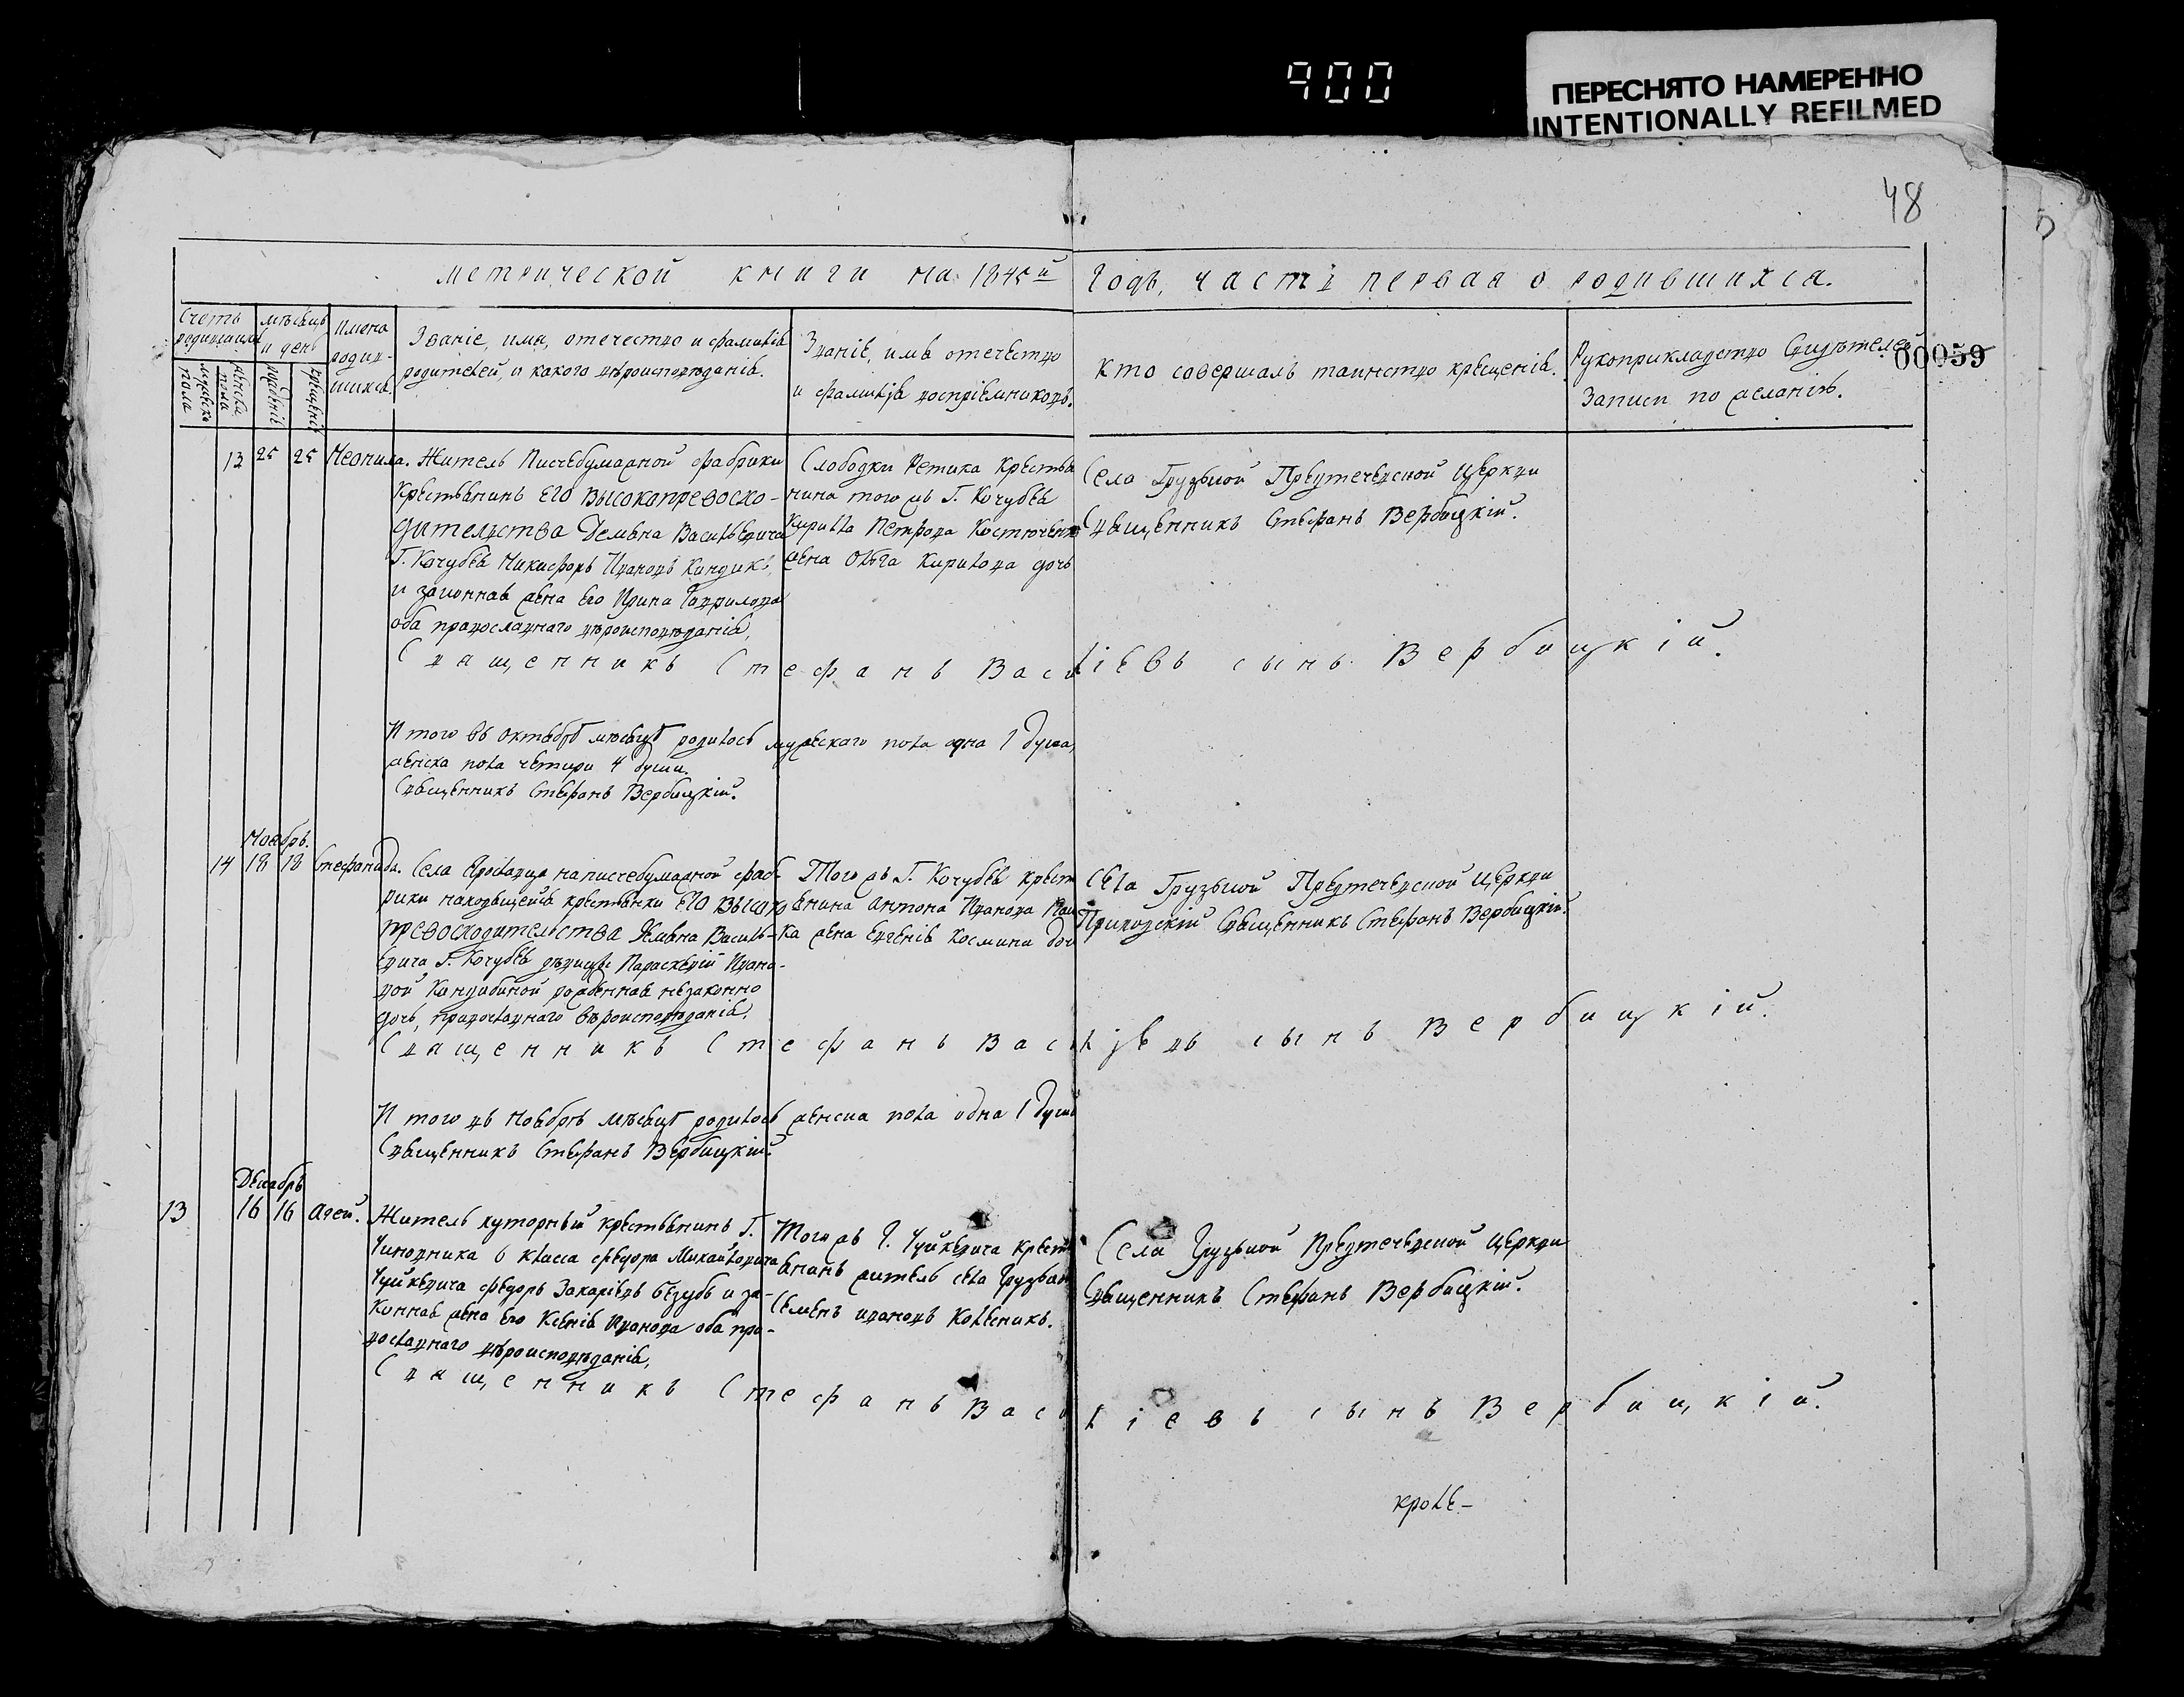 900
ПЕРЕСНЯТО НАМЕРЕННО
INTENTIONALLY REFILMED
48
метрической книги на 1845й годъ, часть первая о родившихся.
Счетъ родившихся
мужеска пола
женска пола
мѣсяцъ и день
рожденіе
крещеніе
имена родив-
шихся.
Званіе, имя, отечество и фамилія
родителей, и какого вѣроисповѣданія.
Званіе, имя отечество
и фамилія воспріемниковъ.
Кто совершалъ таинство крещенія.
Рукоприкладство свидѣтелей
записи по желанію.
00059
13 25 25 Неонила.
Житель Писчебумажной фабрики
Крестьянинъ Его Высокопревосхо-
дительства Демьяна Васильевича
Г. Кочубея Никифоръ Ивановъ Киндикъ
и законная жена его Ирина Гаврилова
оба православнаго вѣроисповѣданія,
Слободки Ретика Крестья
нина того жъ Г. Кочубея
Кирилла Петрова Костючен
жена Ольга Кирилова дочь
Села Грузьной Предтечевской Церкви
Священникъ Стефанъ Вербицкій.
Священникъ Стефанъ Василіевъ сынъ Вербицкій.
И того въ октябрѣ мѣсяцѣ родилось мужескаго пола одна 1 душа,
женска пола четыри 4 души.
Священникъ Стефанъ Вербицкій.
Ноябрь.
14 18 18 Стефанида.
Села Ярославца на писчебумажной фаб-
рики находящейся крестьянки Его Высоко
превосходительства Демьяна Василь-
евича Г. Кочубея дѣвицы Параскевій Ивано-
вой Кандибиной рожденная незаконно
дочь, православнаго вѣроисповѣданія.
Того жъ Г. Кочубея крест
янина Антона Иванова
ка жена Евгенія Космина доч
Села Грузьной Предтечевской Церкви
Приходскій Священникъ Стефанъ Вербицкій.
Священникъ Стефанъ Василіевъ сынъ Вербицкій.
И того въ Ноябрѣ мѣсяцѣ родилось женска пола одна 1 душа
Священникъ Стефанъ Вербицкій.
Декабрь
13 16 16 Агей.
Житель хуторный крестьянинъ Г.
Чиновника 6 класса Федора Михайловича
Чуйкевича Федоръ Захаріевъ Безубъ и за-
конная жена его Ксенія Иванова оба пра-
вославнаго вѣроисповѣданія,
Того жъ Г. Чуйкевича крест
янинъ житель села Грузьной
Семенъ Ивановъ Колесникъ.
Села Грузьной Предтечевской Церкви
Священникъ Стефанъ Вербицкій.
Священникъ Стефанъ Василіевъ сынъ Вербицкій.
кроле-